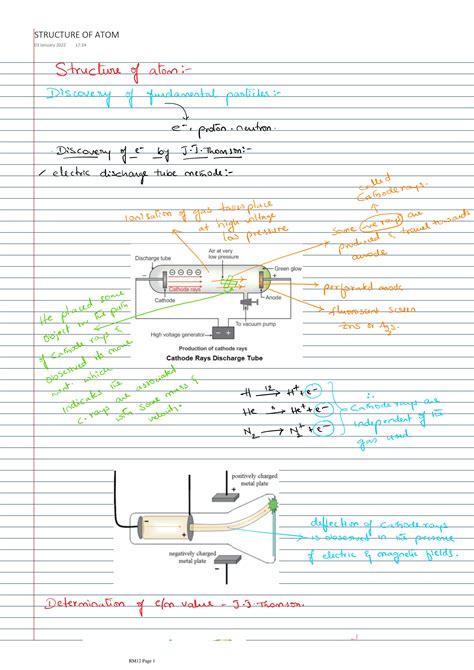 STRUCTURE OF ATOM
03 January 2022 17:24
Structure of atom:-
Discovery of fundamental particles:-
e⁻, proton, neutron.
Discovery of e⁻ by J.J.Thomson:-
electric discharge tube methode:-
Ionisation of gas takes place
at high voltage
low pressure
called
Cathode rays.
some -ve rays are
produced & travel towards
anode
Discharge tube
Air at very
low pressure
Green glow
Cathode rays
Cathode
Anode
To vacuum pump
High voltage generator
Production of cathode rays
Cathode Rays Discharge Tube
perforated anode
fluorescent screen
zns or
He placed some
object in the path
of Cathode rays &
observed its move
ment. which
Indicates the
c. rays are associated
with some mass &
velocity.
H → H⁺ + e⁻
He → He⁺ + e⁻
N₂ → N₂⁺ + e⁻
Cathode rays are
independent of the
gas used
positively charged
metal plate
negatively charged
metal plate
deflection of Cathode rays
is observed in the presence
of electric & magnetic fields.
Determination of e/m value - J.J.Thomson.
RM12 Page 1